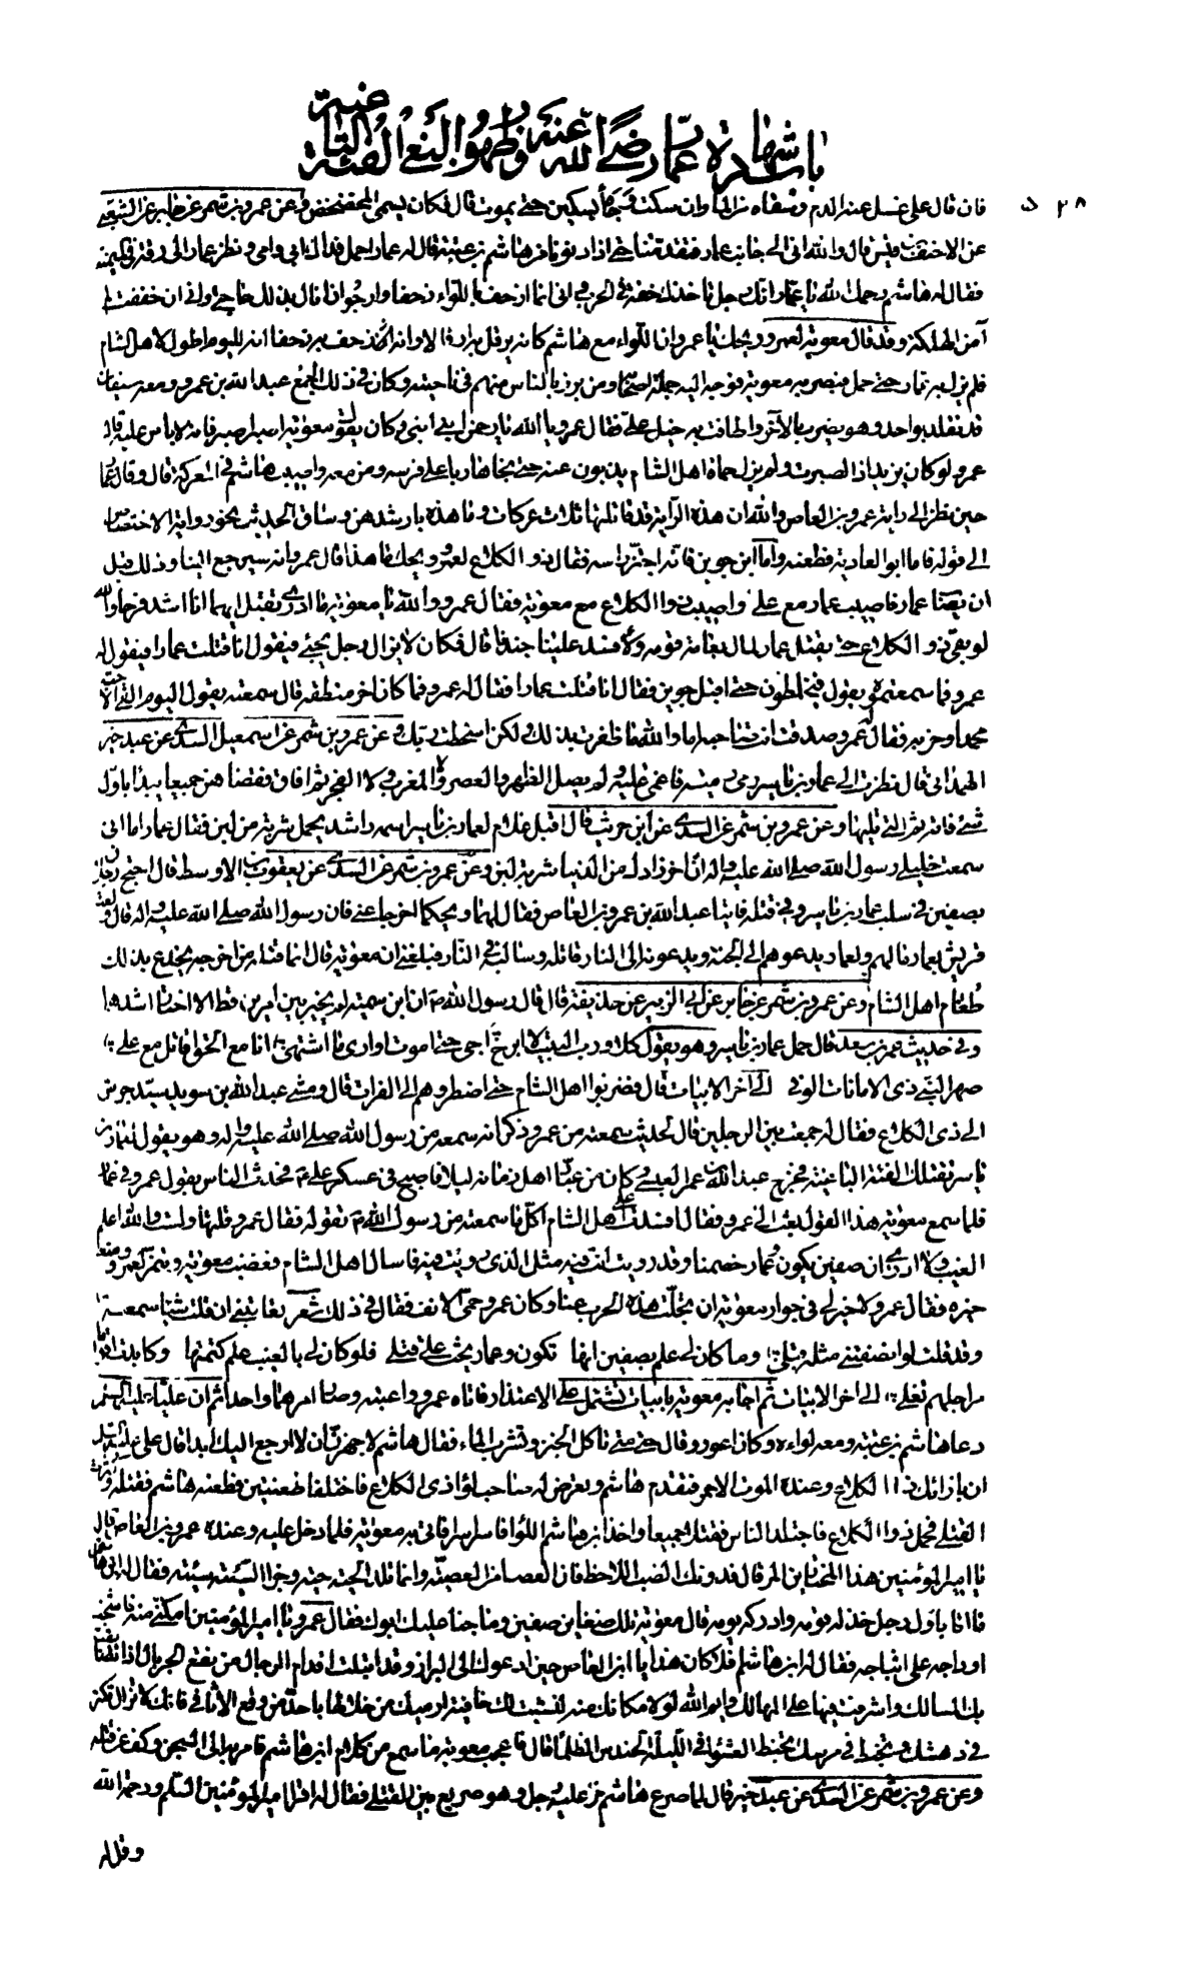 باب شهادة عمار رضي الله عنه وظهور البغي الفئة الناضبة
٥٢٨
فان قال علي غسل عنه الدم وسقاه من الماء وان سكت بسكين حتى يموت قال فكان يسمى المخضخض وعن عمرو بن شمر عن جابر عن الشعبي
عن الاحنف بن قيس قال والله اني الى جانب عمار فتقدمنا حتى اذا دنونا من هاشم بن عتبة قال له عمار احمل فداك ابي وامي ونظر عمار الى رقة في الميمنة
فقال له هاشم رحمك الله يا عمار انك رجل تاخذك خفة في الحرب واني انما ازحف باللواء زحفا وارجو ان انال بذلك حاجتي واني ان خففت لم
آمن الهلكة وقد قال معوية لعمرو ويحك يا عمرو ان اللواء مع هاشم كانه يرقل به ارقالا وانه ان زحف به زحفا انه لليوم اطول لاهل الشام
فلم يزل به عمار حتى حمل فبصر به معوية فوجه اليه جملة اصحابه ومن برز بالناس منهم في ناحيته وكان في ذلك الجمع عبد الله بن عمرو ومعه سيفان
قد تقلد بواحد وهو يضرب بالآخر واطافت به خيل علي فقال عمرو يا الله يا رحمن ابني ابني وكان يقول معوية اصبر اصبر فانه لا باس عليه قال
عمرو لو كان يزيد اذا لصبرت ولم يزل حماة اهل الشام يذبون عنه حتى نجا هاربا على فرسه ومن معه واصيب هاشم في المعركة قال وقال عمار
حين نظر الى راية عمرو بن العاص والله ان هذه الراية قد قاتلها ثلاث عركات وما هذه بارشدهن وساق الحديث نحو رواية الاختصاص
الى قوله فاما ابو العادية فطعنه واما ابن جوين فانه اجتز راسه فقال ذو الكلاع لعمرو ويحك ما هذا قال عمرو انه سيرجع الينا وذلك قبل
ان يصاب عمار فاصيب عمار مع علي واصيب ذو الكلاع مع معوية فقال عمرو والله يا معوية ما ادري بقتل ايهما انا اشد فرحا والله
لو بقي ذو الكلاع حتى يقتل عمار لمال بعامة قومه ولافسد علينا جندنا قال فكان لا يزال رجل يجئ فيقول انا قتلت عمارا فيقول له
عمرو فما سمعتموه يقول فيخلطون حتى اقبل جوين فقال انا قتلت عمارا فقال له عمرو فما كان اخر منطقه قال سمعته يقول اليوم القى الاحبة
محمدا وحزبه فقال عمرو صدقت انت صاحبه اما والله ما ظفرت يداك ولكن اسخطت ربك وعن عمرو بن شمر عن اسمعيل السدي عن عبد خير
الهمداني قال نظرت الى عمار بن ياسر رمي رمية فاغمي عليه ولم يصل الظهر والعصر والمغرب ولا الفجر ثم افاق فقضاهن جميعا يبدا باول
شئ فاته ثم التي تليها وعن عمرو بن شمر عن السدي عن ابن حريث قال اقبل غلام لعمار بن ياسر اسمه راشد يحمل شربة من لبن فقال عمار اما اني
سمعت خليلي رسول الله صلى الله عليه واله ان اخر زادك من الدنيا شربة لبن وعن عمرو بن شمر عن السدي عن يعقوب بن الاوسط قال احتج رجلان
بصفين في سلب عمار بن ياسر وفي قتله فاتيا عبد الله بن عمرو بن العاص فقال لهما ويحكما اخرجا عني فان رسول الله صلى الله عليه واله قال ولعت
قريش بعمار ما لهم ولعمار يدعوهم الى الجنة ويدعونه الى النار قاتله وسالبه في النار فبلغني ان معوية قال انما قتله من اخرجه يخدع بذلك
طغام اهل الشام وعن عمرو بن شمر عن جابر عن ابي الزبير عن حذيفة قال قال رسول الله ص ان ابن سمية لم يخير بين امرين قط الا اختار اشدهما
وفي حديث عمر بن سعد قال حمل عمار بن ياسر وهو يقول كلا ورب البيت لا ابرح اجي حتى اموت او ارى ما اشتهي انا مع الحق اقاتل مع علي
صهر النبي ذي الامانات الوفي الى آخر الابيات قال فضربوا اهل الشام حتى اضطروهم الى الفرات قال ومشى عبد الله بن سويد سيد جرش
الى ذي الكلاع فقال له جمعت بين الرجلين قال لحديث سمعته من عمرو ذكر انه سمعه من رسول الله صلى الله عليه واله وهو يقول لعمار بن
ياسر تقتلك الفئة الباغية فخرج عبد الله بن عمر العبسي وكان من عباد اهل زمانه ليلا فاصبح في عسكر علي ع فحدث الناس بقول عمرو في عمار
فلما سمع معوية هذا القول بعث الى عمرو فقال افسدت علي اهل الشام اكل ما سمعته من رسول الله ص تقوله فقال عمرو قلتها ولست والله اعلم
الغيب ولا ادري ان صفين يكون عمار خصمنا وقد رويت انت فيه مثل الذي رويت فيه فاسال اهل الشام فغضب معوية وتنمر لعمرو ومنعه
خيره فقال عمرو لا خير لي في جوار معوية ان تجلت هذه الحرب عنا وكان عمرو حمي الانف فقال في ذلك شعر تعاتبني ان قلت شيئا سمعته
وقد قلت لو انصفتني مثله قبلي وما كان لي علم بصفين انها تكون وعمار يحث على قتلي فلو كان لي بالغيب علم كتمتها وكابدت اقواما
مراجلهم تغلي الى اخر الابيات ثم اجابه معوية بابيات تشتمل على الاعتذار فاتاه عمرو واعتبه وصار امرهما واحدا ثم ان عليا عليه السلام
دعا هاشم بن عتبة ومعه لواءه وكان اعور وقال حتى متى تاكل الخبز وتشرب الماء فقال هاشم لاجهدن ان لا ارجع اليك ابدا قال علي عليه السلام
ان بازائك ذا الكلاع وعنده الموت الاحمر فتقدم هاشم وتعرض له صاحب لواء ذي الكلاع فاختلفا طعنتين فطعنه هاشم فقتله وكثرت
القتلى فحمل ذو الكلاع فاجتلد الناس فقتلا جميعا واخذ ابن هاشم اللواء فاسر اسرا فاتي به معوية فلما دخل عليه وعنده عمرو بن العاص قال
يا امير المؤمنين هذا المختال بن المرقال فدونك الضب اللاحظ فان العصا من العصية وانما تلد الحية حية وجزاء السيئة سيئة فقال ابن هاشم
ما انا باول رجل خذله قومه وادركه يومه قال معوية تلك ضغاين صفين وما جنا عليك ابوك فقال عمرو يا امير المؤمنين امكني منه فاشخب
اوداجه على اثباجه فقال له ابن هاشم فلا كان هذا يا ابن العاص حين ادعوك الى البراز وقد ابتلت اقدام الرجال من نقع الجريال اذ تضايقت
بك المسالك واشرفت فيها على المهالك وايم الله لولا مكانك منه لنشبت لك خافية ارميك من خللها باحد من وقع الاثافي فانك لا تزال تكثر
في دهشك وتخبط في مرسك تخبط العشواء في الليلة الحندس الظلماء قال فاعجب معوية ما سمع من كلام ابن هاشم فامر به الى السجن وكف عن قتله
وعن عمرو بن شمر عن السدي عن عبد خير قال لما صرع هاشم مر عليه رجل وهو صريع بين القتلى فقال له اقرا امير المؤمنين السلم ورحمة الله
وقل له